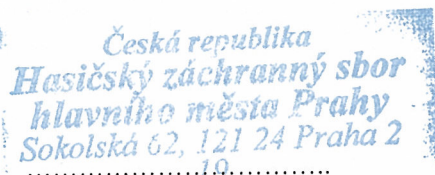 Česká republika
Hasičský záchranný sbor
hlavního města Prahy
Sokolská 62, 121 24 Praha 2
19